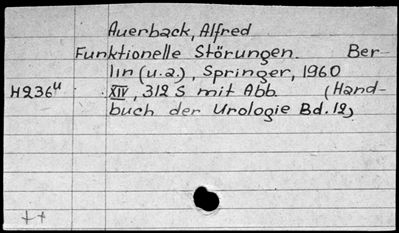 Auerback, Alfred
Funktionelle Störungen. Ber-
lin (u.a.), Springer, 1960
H236u XIV, 312 S mit Abb. (Hand-
buch der Urologie Bd. 12)
++